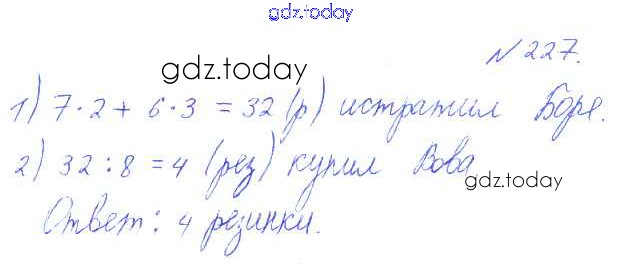 gdz.today
№ 227.
gdz.today
1) 7·2 + 6·3 = 32 (р) истратил Боре.
2) 32 : 8 = 4 (рез) купил Вова
gdz.today
Ответ: 4 резинки.